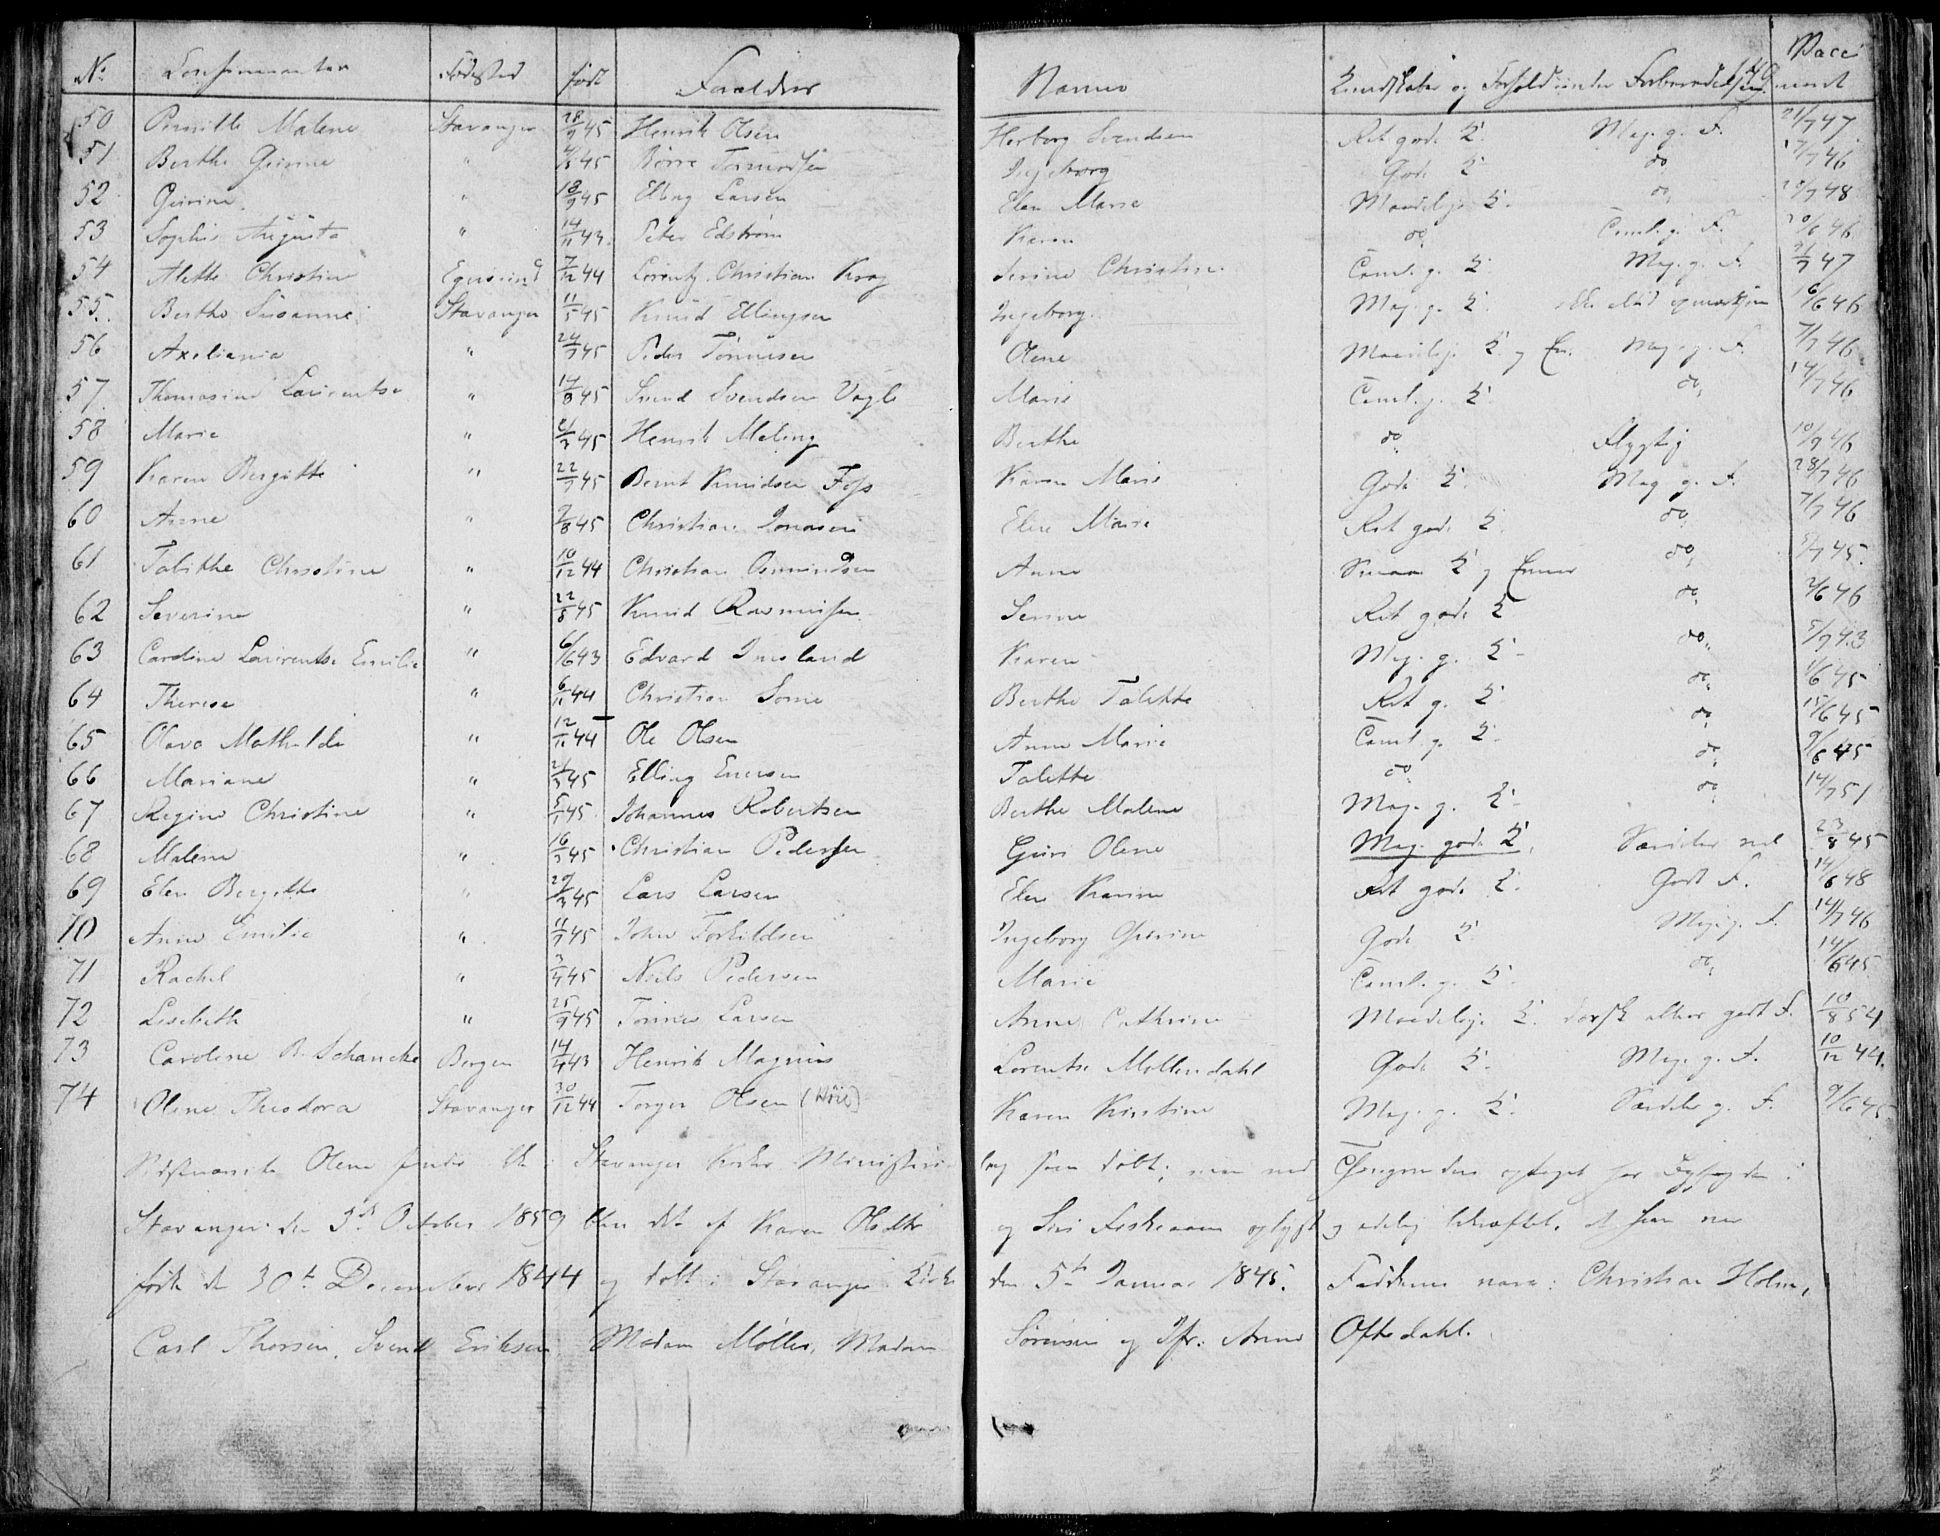 No Confirmanter Fødested født Forældres Navne Kundskaber og Forhold under Forberedelsen Vaccineret
50 Pernille Malene Stavanger 28/9 45 Henrik Olsen Herborg Svendsen Ret gode K. Meg. g. F. 21/7 47
51 Berthe Gurine " 45 Børre Tormodsen Ingeborg Gode K do 17/7 46
52 Gurine " 18/9 45 Elling Larsen Elen Marie Maadelige K. do 48
53 Sophie Augusta " 14/11 43 Peter Edstrøm Karen do Teml. g. F. 20/6 46
54 Alette Christine Egersund 7/12 44 Lorentz Christian Krog Serine Christine Teml. g. K Meg. g. F. 2/7 47
55 Berthe Susanne Stavanger 11/5 45 Knud Ellingsen Ingeborg Meg. g. K. 16/6 46
56 Axeliania " 24/7 45 Peder Tønnesen Olene Maadelige K. og Meg. g. F. 7/7 46
57 Thomasine Laurentse " 17/8 45 Svend Svendsen Vagle Marie Teml. g. K. do 14/7 46
58 Marie " 45 Henrik Meling Berthe do Flygtig 10/9 46
59 Karen Bergitte " 22/7 45 Bernt Knudsen Foss Karen Marie Gode K. Meg g. F. 28/7 46
60 Anne " 2/8 45 Christian Jonasen Elen Marie Ret gode K. do 7/7 46
61 Talithe Christine " 10/12 44 Christian Gumundsen Anne Smaa K og Evner do 5/7 45
62 Severine " 22/8 45 Knud Rasmussen Serine Ret gode K do 2/6 46
63 Caroline Laurentse Emilie " 6/6 43 Edvard Imsland Karen Meg. g. K do 5/9 43
64 Therese " 6/11 44 Christian Some Berthe Talette Ret g. K do 1/6 45
65 Olava Mathilde " 12/11 44 Ole Olsen Anne Marie Teml. g. K do 15/6 45
66 Mariane " 21/3 45 Elling Enersen Talette do do 9/6 45
67 Regine Christine " 5/1 45 Johannes Robertsen Berthe Malene Meg. g. K do 14/7 51
68 Malene " 16/3 45 Christian Pedersen Guri Olene Meg. gode K. Særdeles vel 23/8 45
69 Elen Bergitte " 29/3 45 Lars Larsen Elen Karine Ret gode K. Godt F. 14/6 48
70 Anne Emilie " 11/7 45 John Torkildsen Ingeborg Gurine Gode K Meg. g. F. 14/7 46
71 Rachel " 3/4 45 Niels Pedersen Marie Teml. g. K. do 14/6 45
72 Lisebeth " 25/9 45 Tønnes Larsen Anne Cathrine Maadelige K. dorsk ellers godt F. 10/8 54
73 Caroline B. Schancke Bergen 14/4 43 Henrik Magnus Lorentse Møllendahl Gode K. Meg. g. F. 10/12 44
74 Olene Theodora Stavanger 30/12 44 Torger Olsen Karen Kirstine Meg. g. K. Særdeles g. F. 9/6 45
Sidstnævnte Olene findes ikke i Stavanger Kirkes Ministerialbog som døbt; men ved
Stavanger den 3die October 1859 blev det af Karen og Siri og edelig bekræftet, at hun var
født den 30te December 1844 og døbt i Stavanger Kirke den 5te Januar 1845. Fadderne vare: Christian Holm,
Carl Thorsen, Svend Eriksen, Madam Møller, Madam Sørensen og Jfr. Anne Oftedahl.